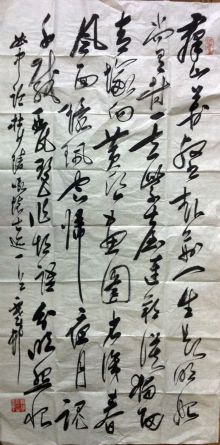 群山萬壑赴荆门生长明妃
尚有村一去紫台连朔漠独留
青塚向黄昏画图省识春
风面环珮空归夜月魂
千载琵琶作胡语分明怨恨
曲中论杜甫